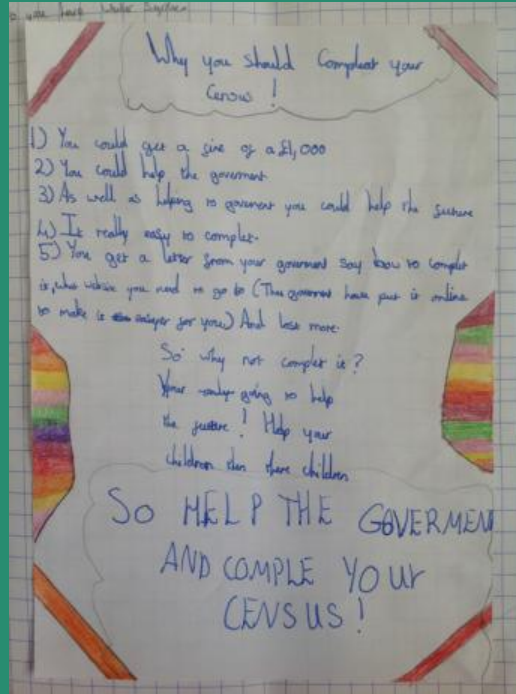 you have
Why you should Compleat your
Census !
1) You could get a fine of a £1,000
2) You could help the goverment
3) As well as helping to goverment you could help the future
4) It really easy to complet.
5) You get a letter from your goverment say how to complet
it, what website you need to go to (The goverment have put it online
to make it easyer for you) And lost more.
So why not complet it?
Your only going to help
the future! Help your
children then there children
SO HELP THE GOVERMEN
AND COMPLE YOUr
CENSUS!